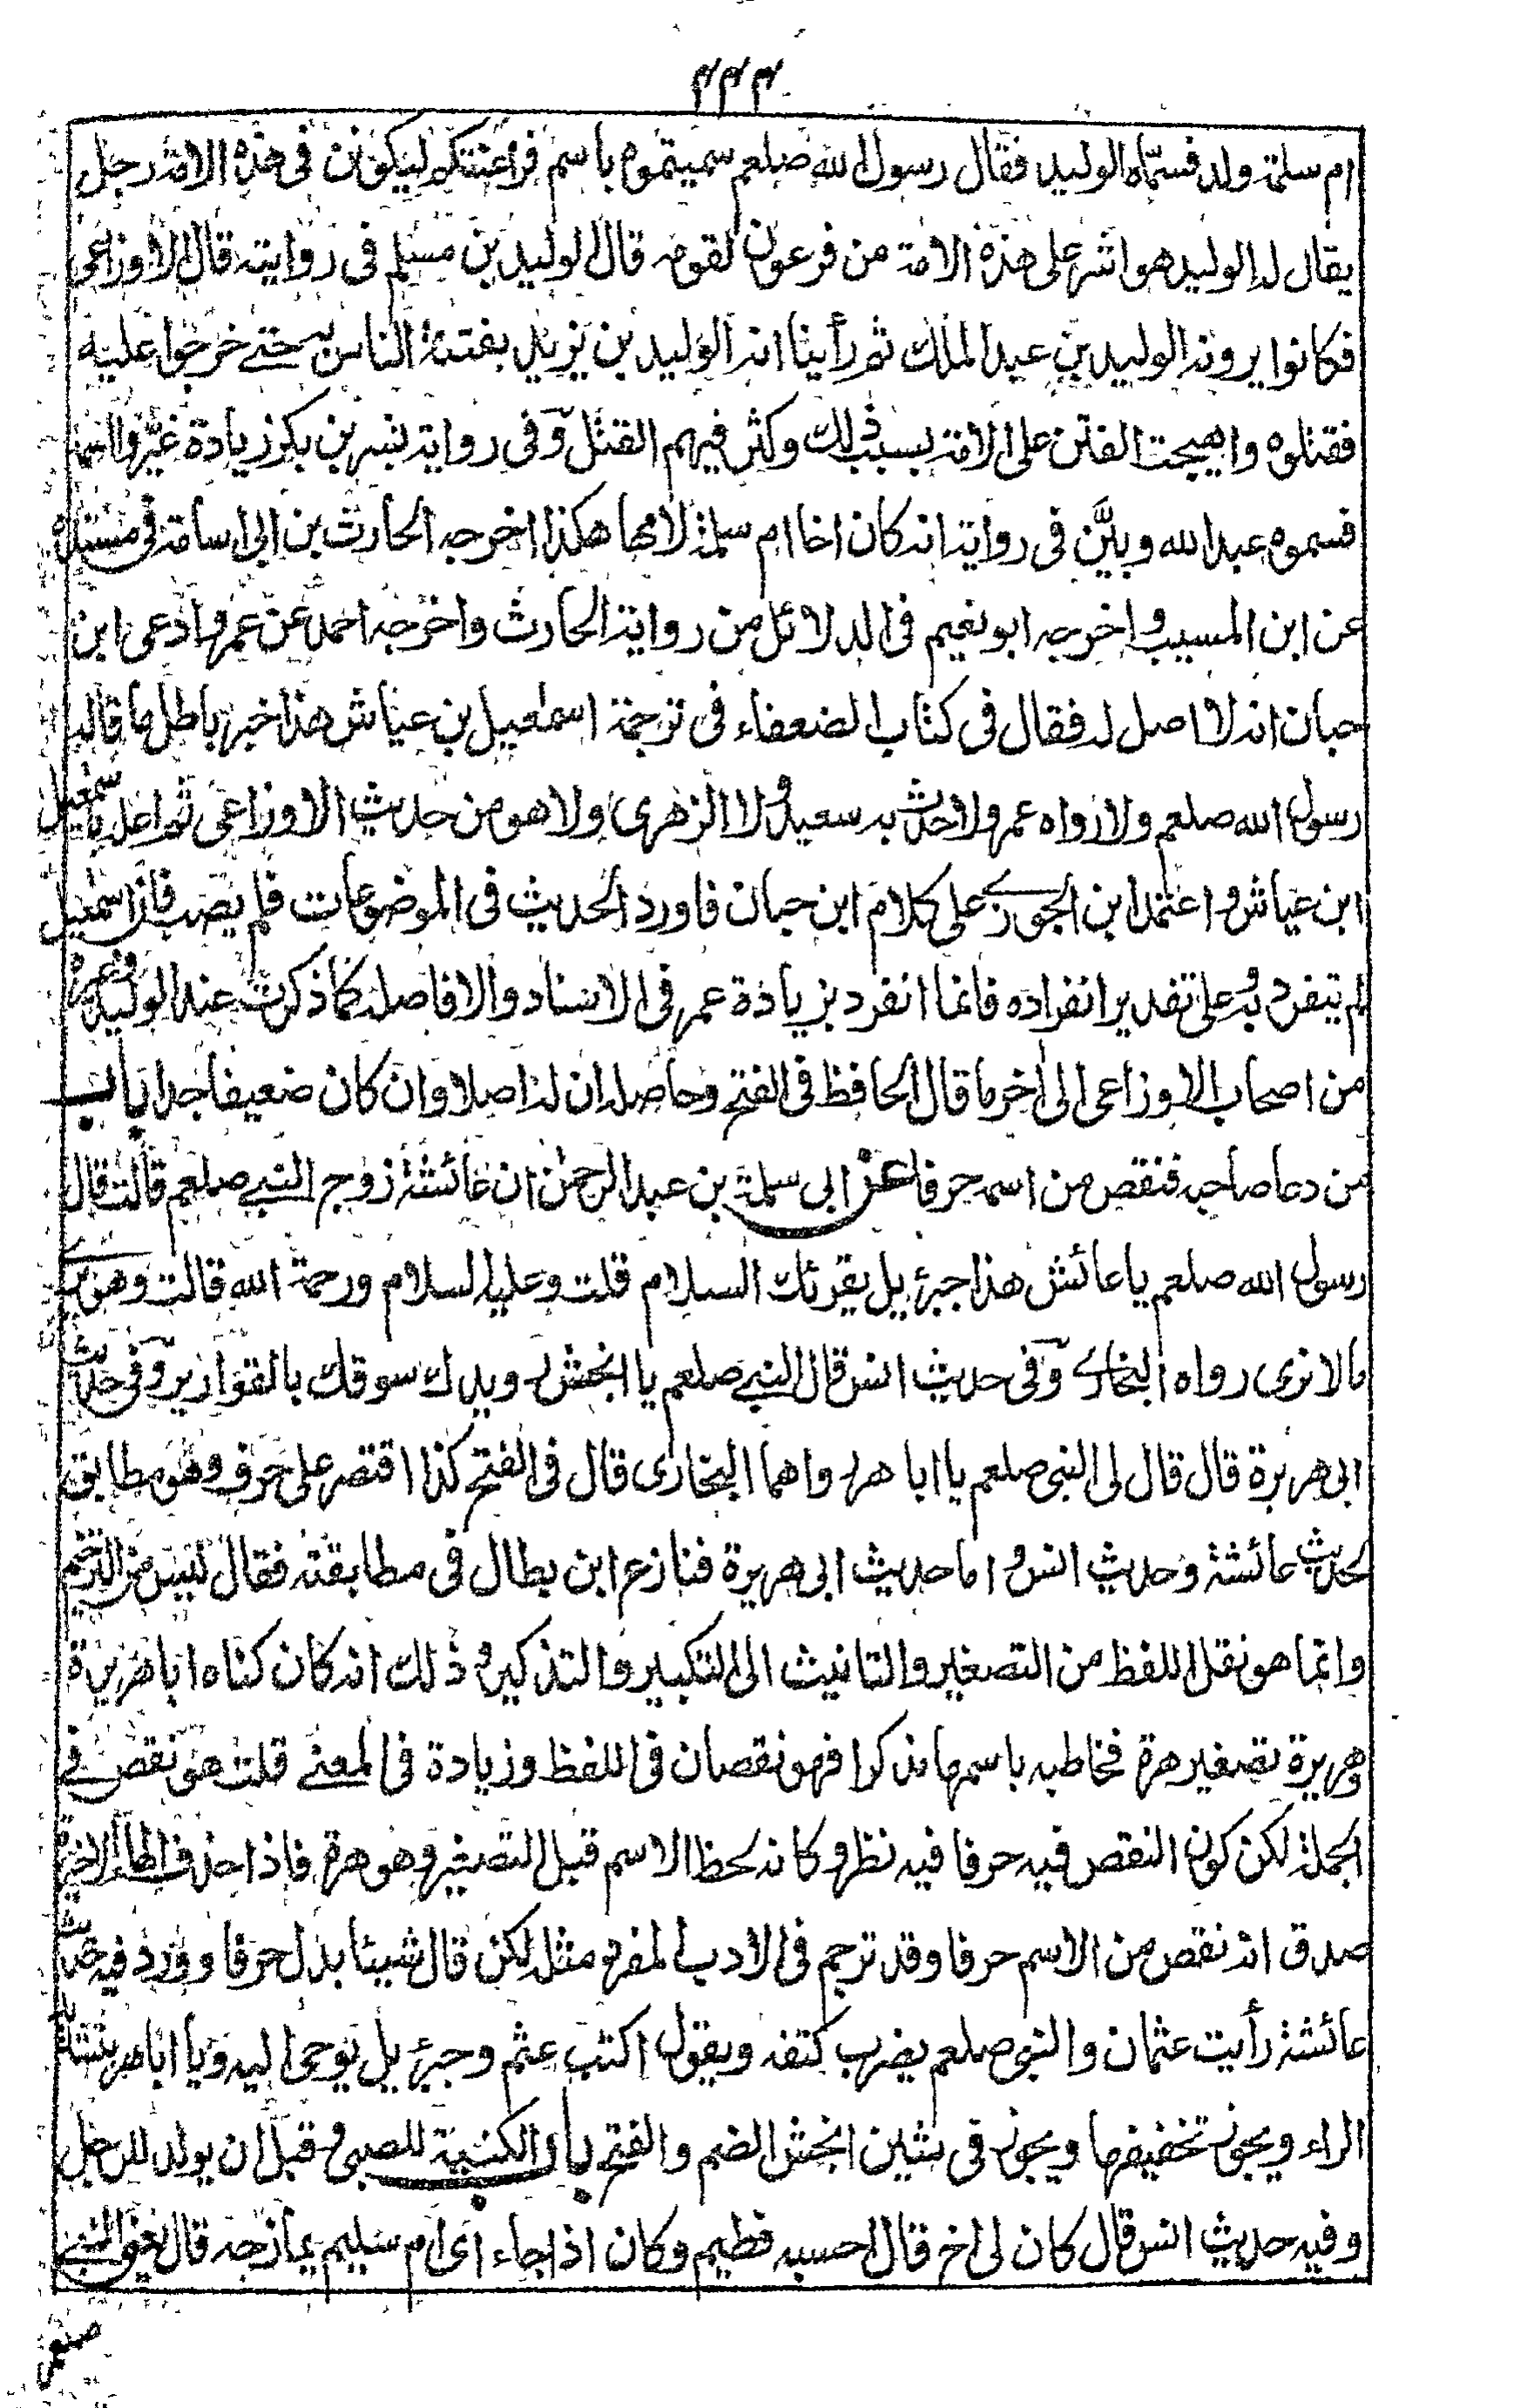 ٣٣٣
ام سلمة ولد فسمّاه الوليد فقال رسول الله صلعم سميتموه باسم فراعنتكم ليكونن فى هذه الامة رجل
يقال له الوليد هو اشر على هذه الامة من فرعون لقومه قال الوليد بن مسلم فى روايته قال الاوزاعى
فكانوا يرونه الوليد بن عبد الملك ثم رأينا انه الوليد بن يزيد بفتنة الناس به حتے خرجوا عليه
فقتلوه وانفتحت الفتن على الامة بسبب ذلك وكثر فيهم القتل وفى رواية بشر بن بكر زيادة غيّروا اسمه
فسموه عبد الله وبيّن فى رواية انه كان اخا ام سلمة لامها هكذا اخرجه الحارث بن ابى اسامة فى مسنده
عن ابن المسيب واخرجه ابو نعيم فى الدلائل من رواية الحارث واخرجه احمد عن عمر وادعى ابن
حبان انه لا اصل له فقال فى كتاب الضعفاء فى ترجمة اسمعيل بن عياش هذا خبر باطل ما قاله
رسول الله صلعم ولا رواه عمر ولا حدث به سعيد ولا الزهرى ولا هو من حديث الاوزاعى ثم اعله باسمعيل
ابن عياش واعتمد ابن الجوزے على كلام ابن حبان فاورد الحديث فى الموضوعات فلم يصب فان اسمعيل
لم يتفرد به وعلى تقدير انفراده فانما انفرد بزيادة عمر فى الاسناد والا فاصله كما ذكرت عند الوليد وغيره
من اصحاب الاوزاعى الى اخر ما قال الحافظ فى الفتح وحاصله ان له اصلا وان كان ضعيفا جدا باب
من دعا صاحبه فنقص من اسمه حرفا عن ابى سلمة بن عبد الرحمن ان عائشة زوج النبے صلعم قالت قال
رسول الله صلعم يا عائش هذا جبرئيل يقرئك السلام قلت وعليه السلام ورحمة الله قالت وهو يرے
ما لا نرى رواه البخارے وفى حديث انس قال النبے صلعم يا انجش رويدك سوقك بالقوارير وفى حديث
ابى هريرة قال قال لى النبى صلعم يا ابا هر رواهما البخارى قال فى الفتح كذا اقتصر على حرف وهو مطابق
لحديث عائشة وحديث انس واما حديث ابى هريرة فنازع ابن بطال فى مطابقته فقال ليس من الترخيم
وانما هو نقل اللفظ من التصغير والتانيث الى التكبير والتذكير وذلك انه كان كناه ابا هريرة
وهريرة تصغير هرة فخاطبه باسمها مذكرا فهو نقصان فى اللفظ وزيادة فى المعنے قلت هو نقص فى
الجملة لكن كون النقص فيه حرفا فيه نظر وكانه لحظ الاسم قبل التصغير وهو هرة فاذا حذف الهاء الاخيرة
صدق انه نقص من الاسم حرفا وقد ترجم فى الادب المفرد مثله لكن قال شيئا بدل حرفا وورد فيه حديث
عائشة رأيت عثمان والنبى صلعم يضرب كتفه ويقول اكتب عثم وجبرئيل يوحى اليه ويا ابا هر بتشديد
الراء ويجوز تخفيفها ويجوز فى شين انجش الضم والفتح باب الكنية للصبى وقبل ان يولد للرجل
وفيه حديث انس قال كان لى اخ قال احسبه فطيم وكان اذا جاء اى ام سليم يمازحه قال يعنى النبے
صلعم